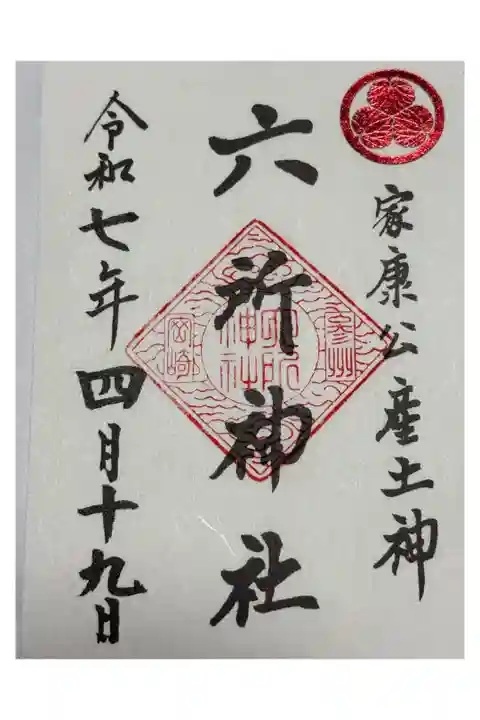 家康公産土神
六所神社
令和七年四月十九日
参州
六所神社
岡崎